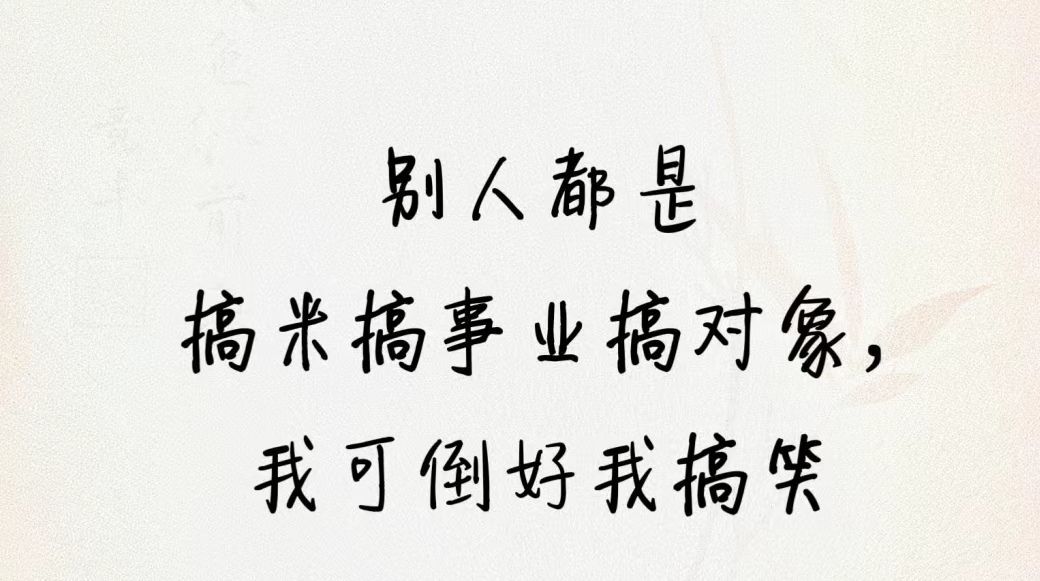 别人都是
搞米搞事业搞对象,
我可倒好我搞笑